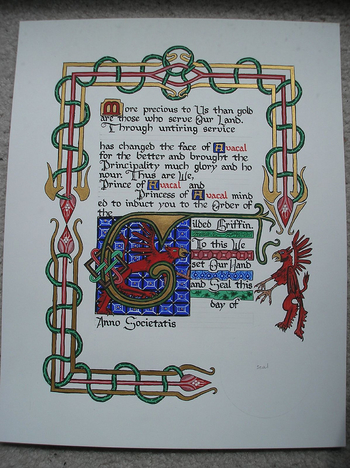 More precious to Us than gold
are those who serve Our Land.
Through untiring service
has changed the face of Avacal
for the better and brought the
Principality much glory and ho
nour. Thus are We,
Prince of Avacal and
Princess of Avacal mind
ed to induct you to the Order of
the
Gilded Griffin.
To this We
set Our Hand
and Seal this
day of
Anno Societatis
Seal